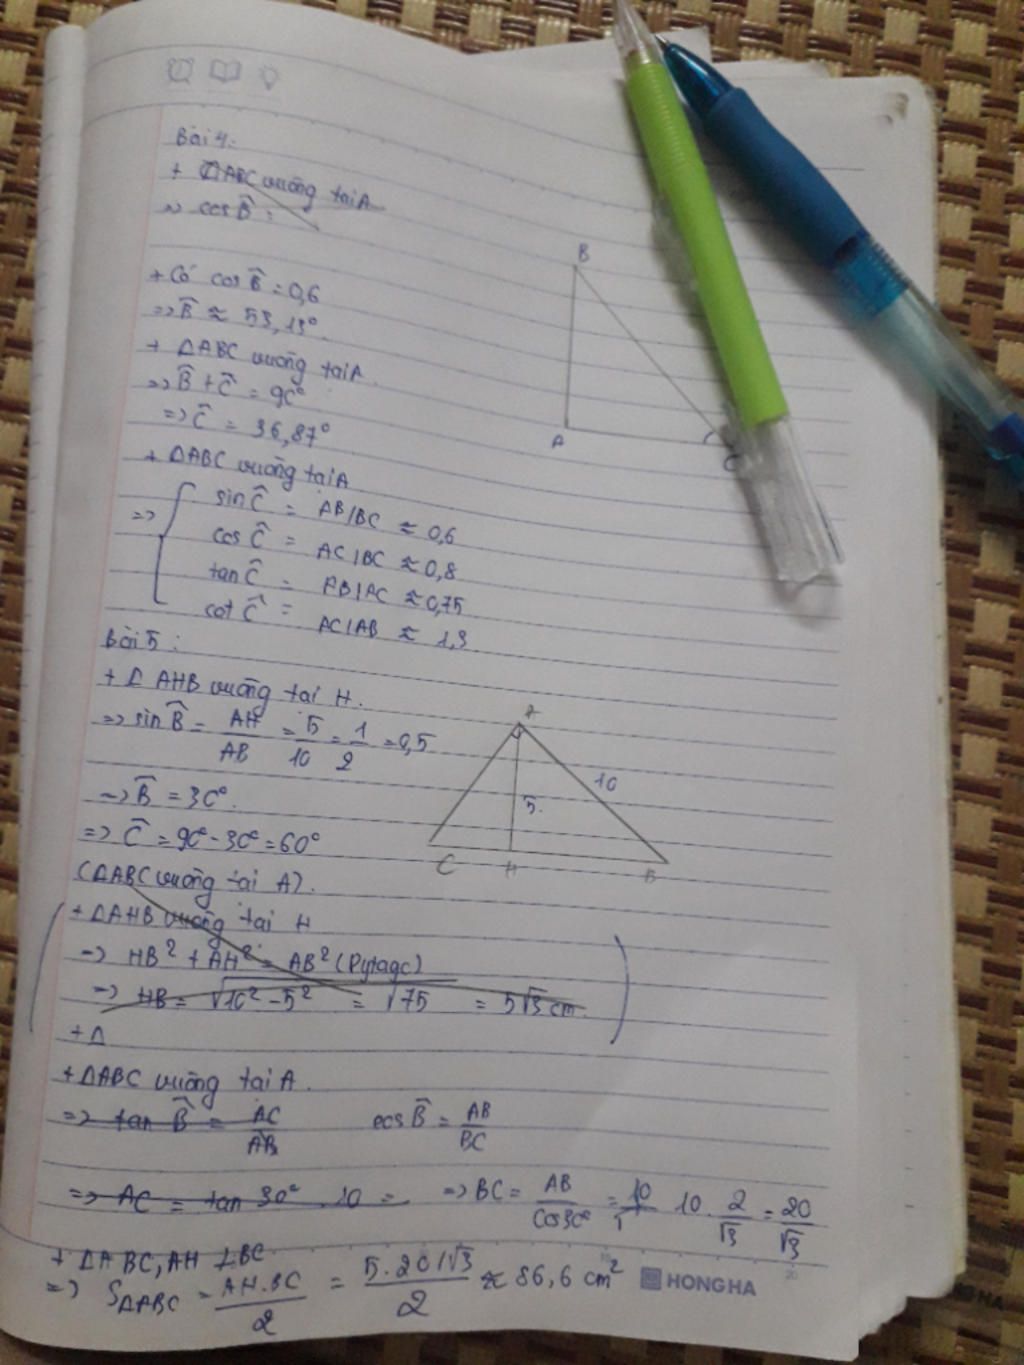 Bài 4:
+ ΔABC vuông tại A
=> cos B̂ =
+ Có cos B̂ = 0,6
=> B̂ ≈ 53,13°
+ ΔABC vuông tại A.
=> B̂ + Ĉ = 90°
=> Ĉ = 36,87°
+ ΔABC vuông tại A
=> { sin Ĉ = AB/BC ≈ 0,6
cos Ĉ = AC/BC ≈ 0,8
tan Ĉ = AB/AC ≈ 0,75
cot Ĉ = AC/AB ≈ 1,3
B
A
C
Bài 5:
+ Δ AHB vuông tại H.
=> sin B̂ = AH/AB = 5/10 = 1/2 = 0,5
=> B̂ = 30°.
=> Ĉ = 90° - 30° = 60°
(ΔABC vuông tại A).
A
10
5.
C H B
+ ΔAHB vuông tại H
=> HB² + AH² = AB² (Pytago)
=> HB = √10² - 5² = √75 = 5√3 cm
+ Δ
+ ΔABC vuông tại A.
=> tan B̂ = AC/AB cos B̂ = AB/BC
=> AC = tan 30° . 10 = => BC = AB/cos30° = 10 . 2/√3 = 20/√3
+ ΔABC, AH ⊥ BC
=> SΔABC = AH.BC/2 = 5.20/√3/2 ≈ 86,6 cm²
HONG HA